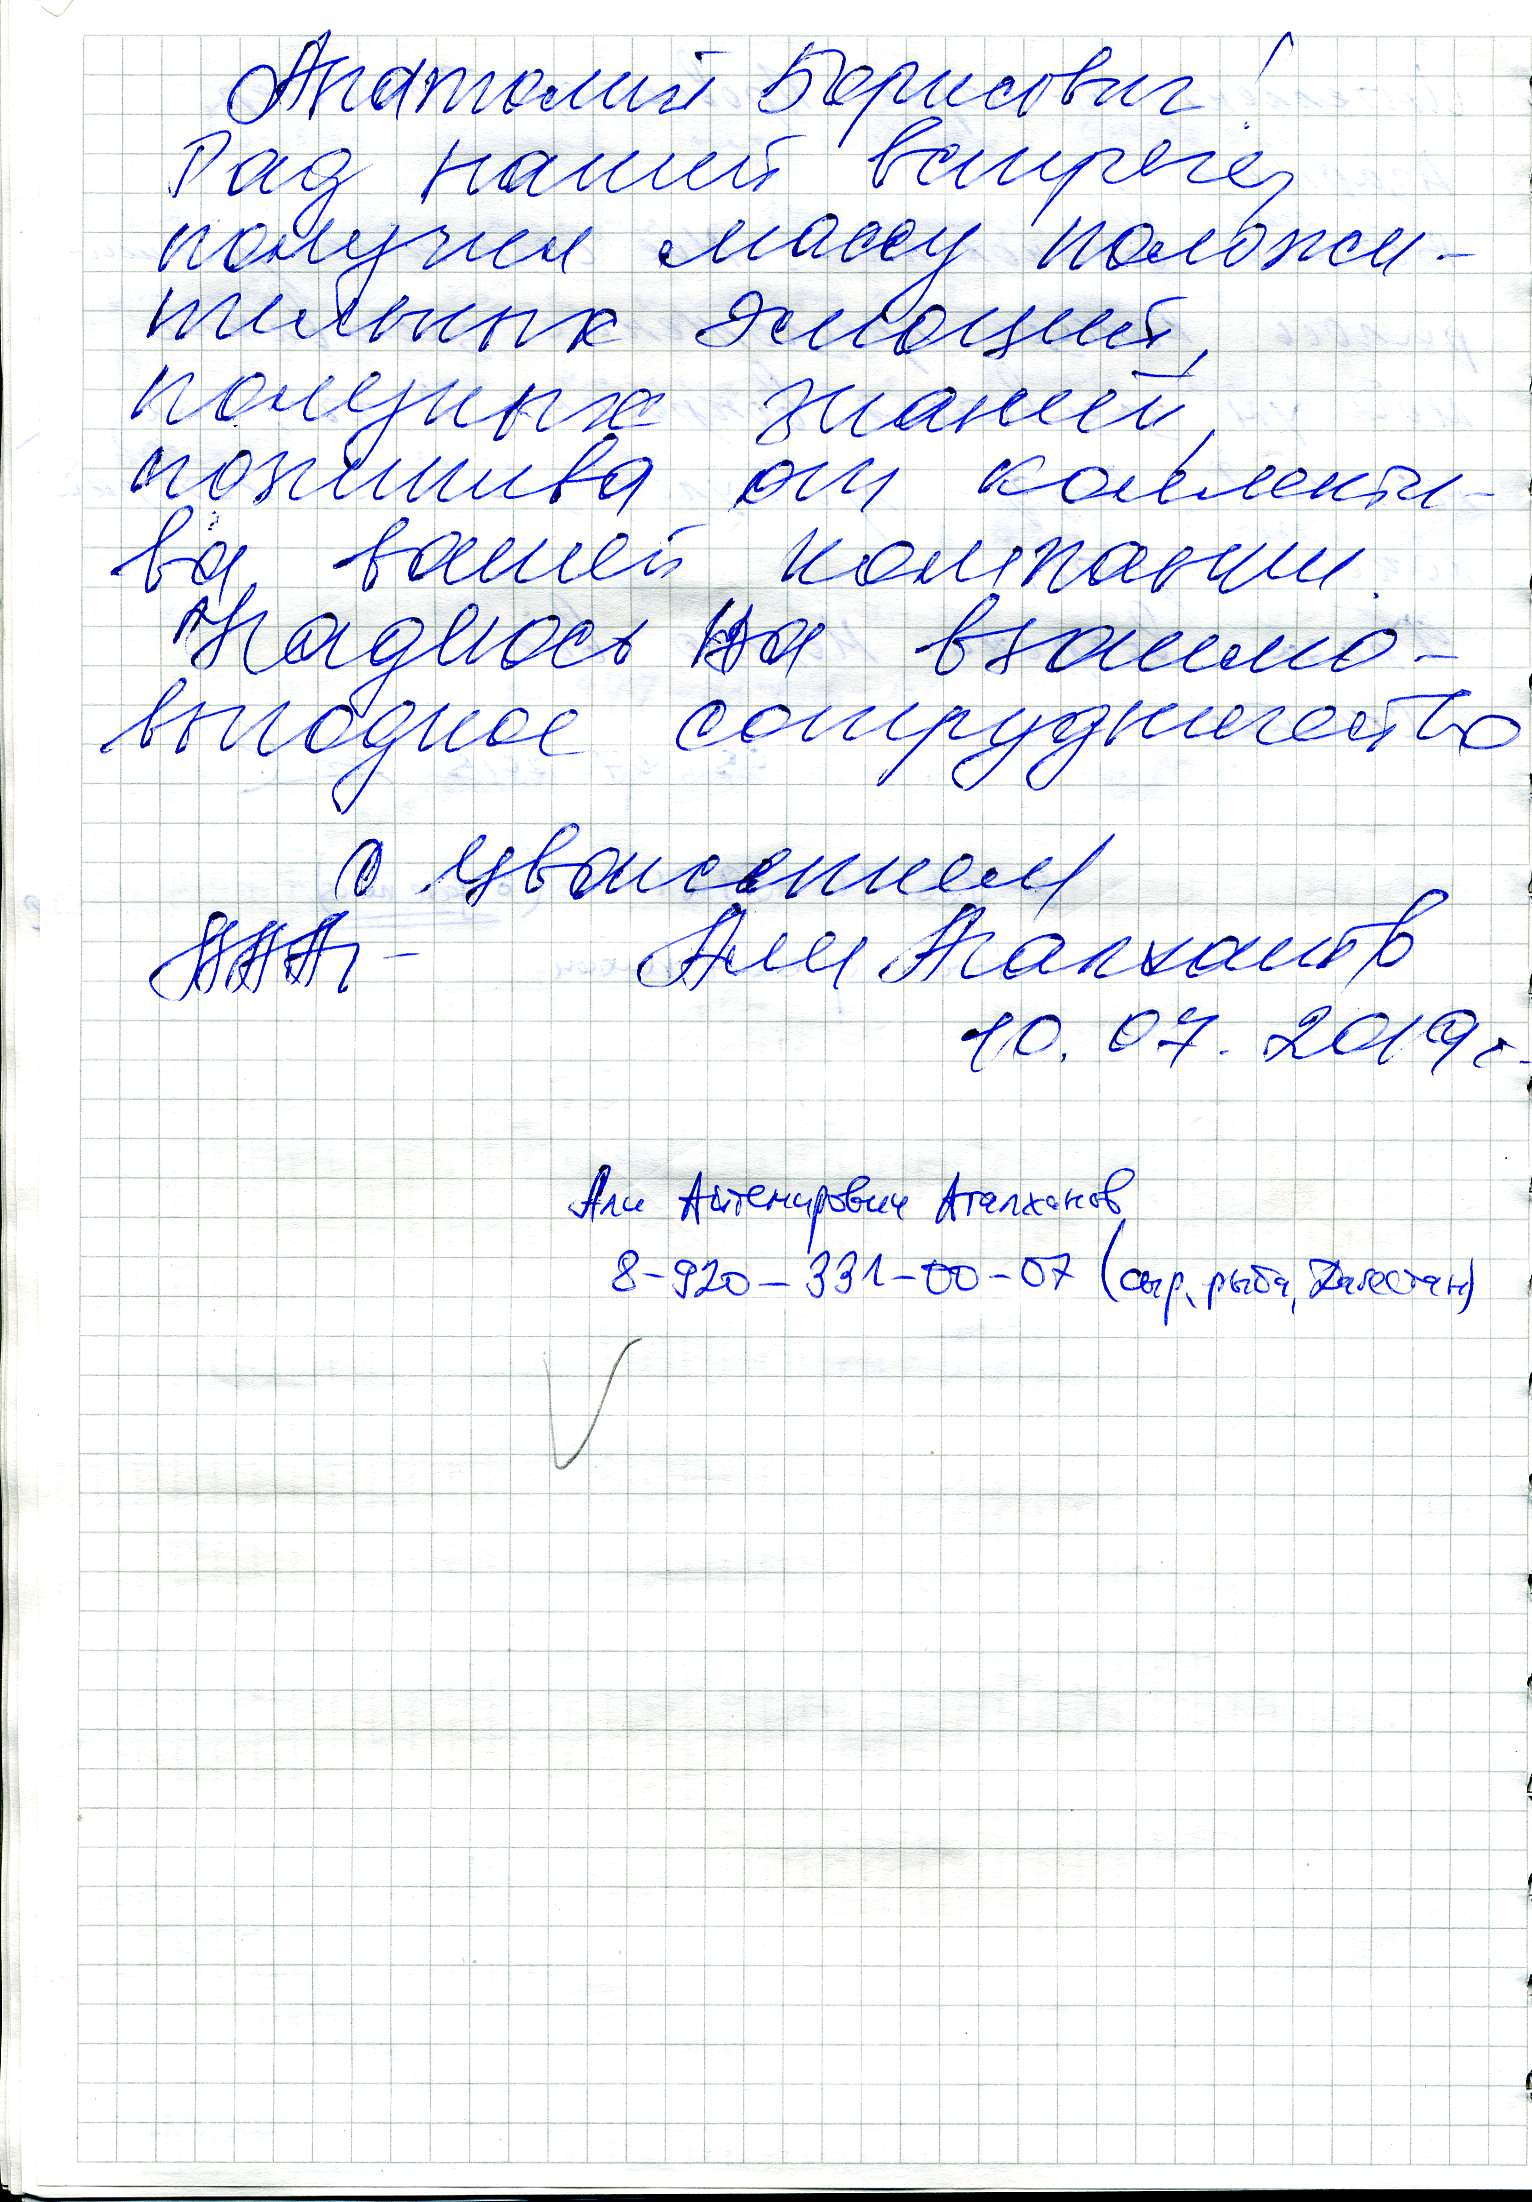 Анатолий Борисович!
Рад нашей встрече,
получил массу положи-
тельных эмоций,
полезных знаний,
позитива от коллекти-
ва вашей компании.
Надеюсь на взаимо-
выгодное сотрудничество
С уважением
Али
10.07.2019г.
Али
8-920-331-00-07 (сыр, рыба, Дагестан)